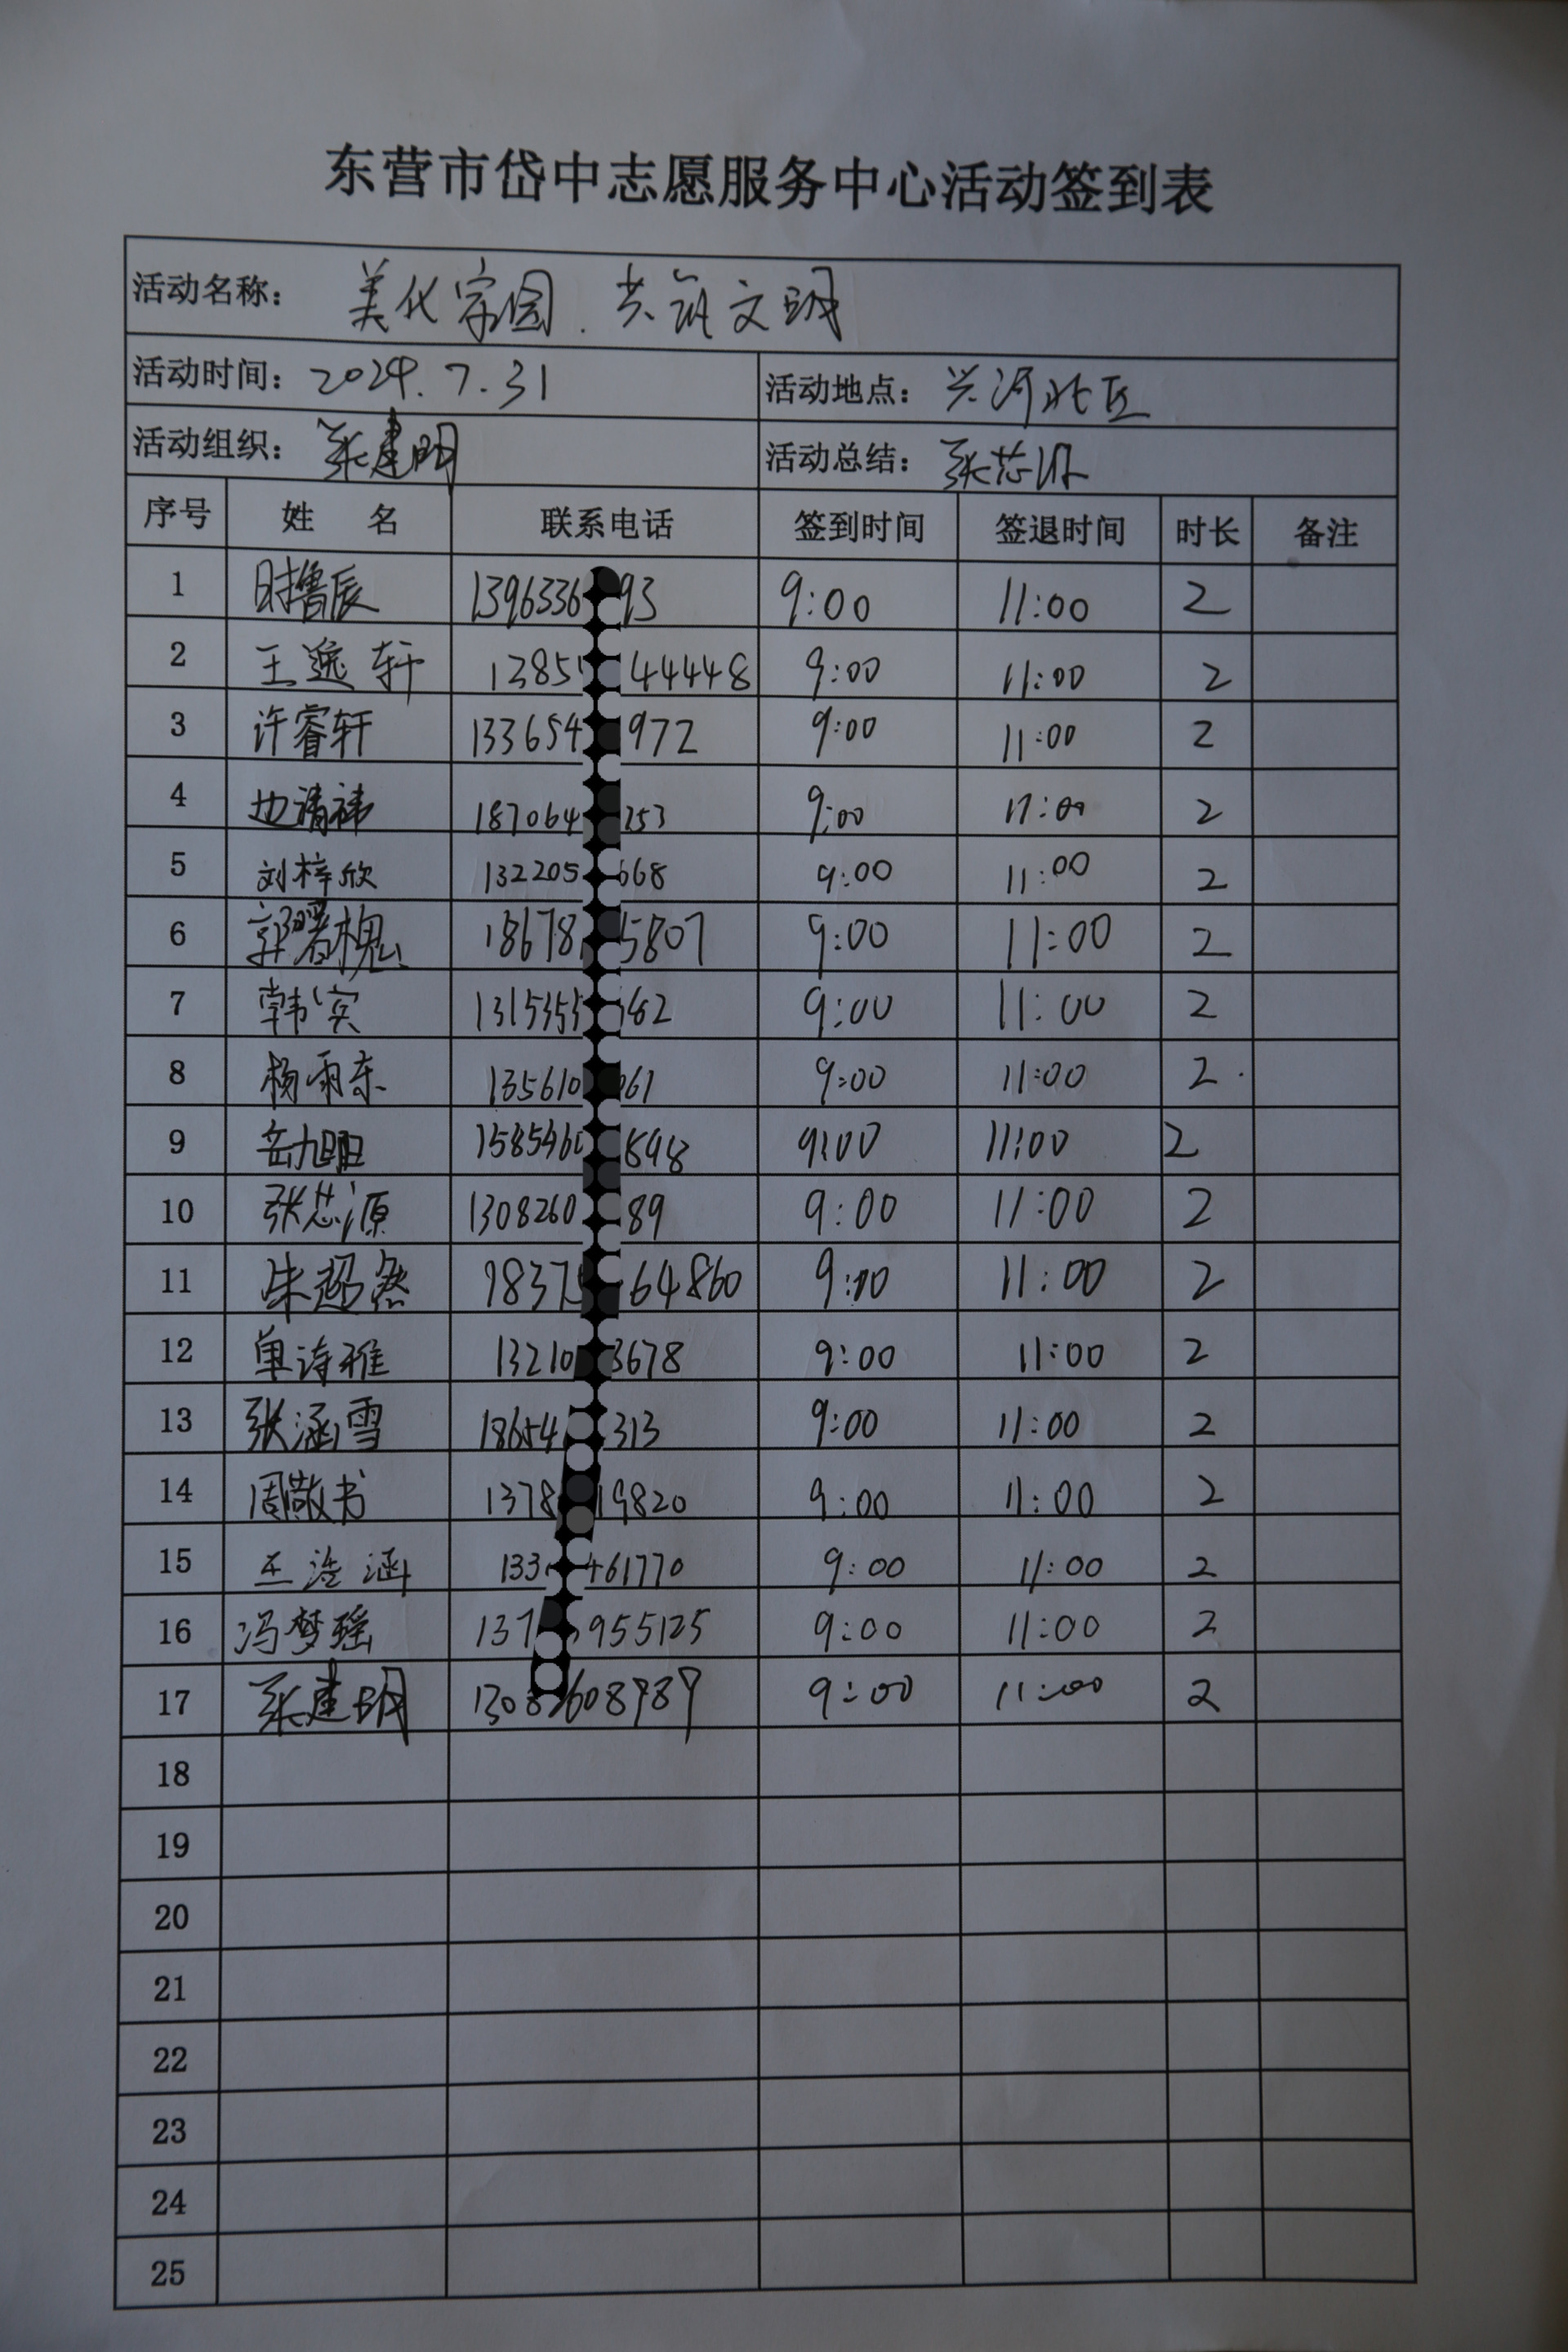 东营市岱中志愿服务中心活动签到表
活动名称： 美化家园．共筑文明
活动时间：2024.7.31 活动地点：兴河北区
活动组织：张建明 活动总结：张芯源
序号 姓 名 联系电话 签到时间 签退时间 时长 备注
1 时鲁辰 1396336 93 9:00 11:00 2
2 王逸轩 1385 44448 9:00 11:00 2
3 许睿轩 133654 972 9:00 11:00 2
4 187064 253 9:00 11:00 2
5 刘梓欣 132205 668 9:00 11:00 2
6 郭曙槐 18678 5807 9:00 11:00 2
7 韩宾 1315353 82 9:00 11:00 2
8 杨雨东 135610 061 9:00 11:00 2
9 岳旭阳 1585460 898 9:00 11:00 2
10 张芯源 1308260 89 9:00 11:00 2
11 朱超然 1837 64860 9:00 11:00 2
12 单诗雅 13210 3678 9:00 11:00 2
13 张涵雪 18654 313 9:00 11:00 2
14 周敬书 1378 19820 9:00 11:00 2
15 王浩涵 133 461770 9:00 11:00 2
16 冯梦瑶 137 955125 9:00 11:00 2
17 张建明 1308 608989 9:00 11:00 2
18
19
20
21
22
23
24
25